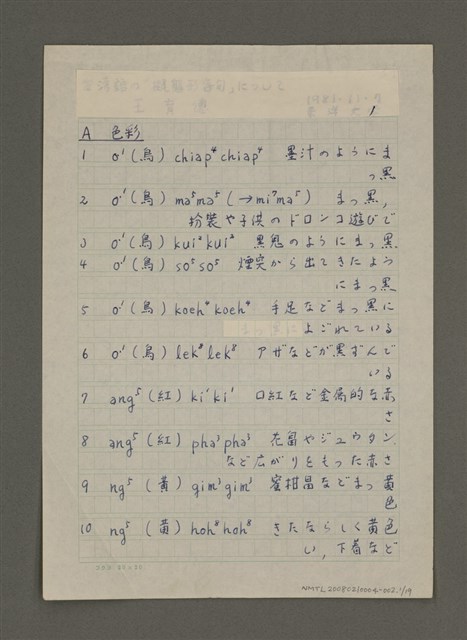 1
A 色彩
1 o¹(烏) chiap⁴chiap⁴ 墨汁のようにま
っ黒
2 o¹(烏) ma⁵ma⁵(→mi⁷ma⁵) まっ黒,
扮装や子供のドロンコ遊びで
3 o¹(烏) kui²kui² 黒鬼のようにまっ黒
4 o¹(烏) so⁵so⁵ 煙突から出てきたよう
にまっ黒
5 o¹(烏) koeh⁴koeh⁴ 手足などまっ黒に
よごれている
6 o¹(烏) lek⁸lek⁸ アザなどが黒ずんで
いる
7 ang⁵(紅) ki¹ki¹ 口紅など金属的な赤
さ
8 ang⁵(紅) pha³pha³ 花畐やジュウタン
など広がりをもった赤さ
9 ng⁵(黄) gim³gim³ 蜜柑畐などまっ黄
色
10 ng⁵(黄) hoh⁸hoh⁸ きたならしく黄色
い,下着など
NMTL20080210004-002.1/19